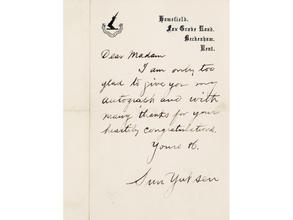 Homefield,
Fox Grove Road,
Beckenham,
Kent.
Dear Madam
I am only too
glad to give you my
autograph and with
many thanks for your
heartily congratulations.
Yours &.
Sun Yat Sen